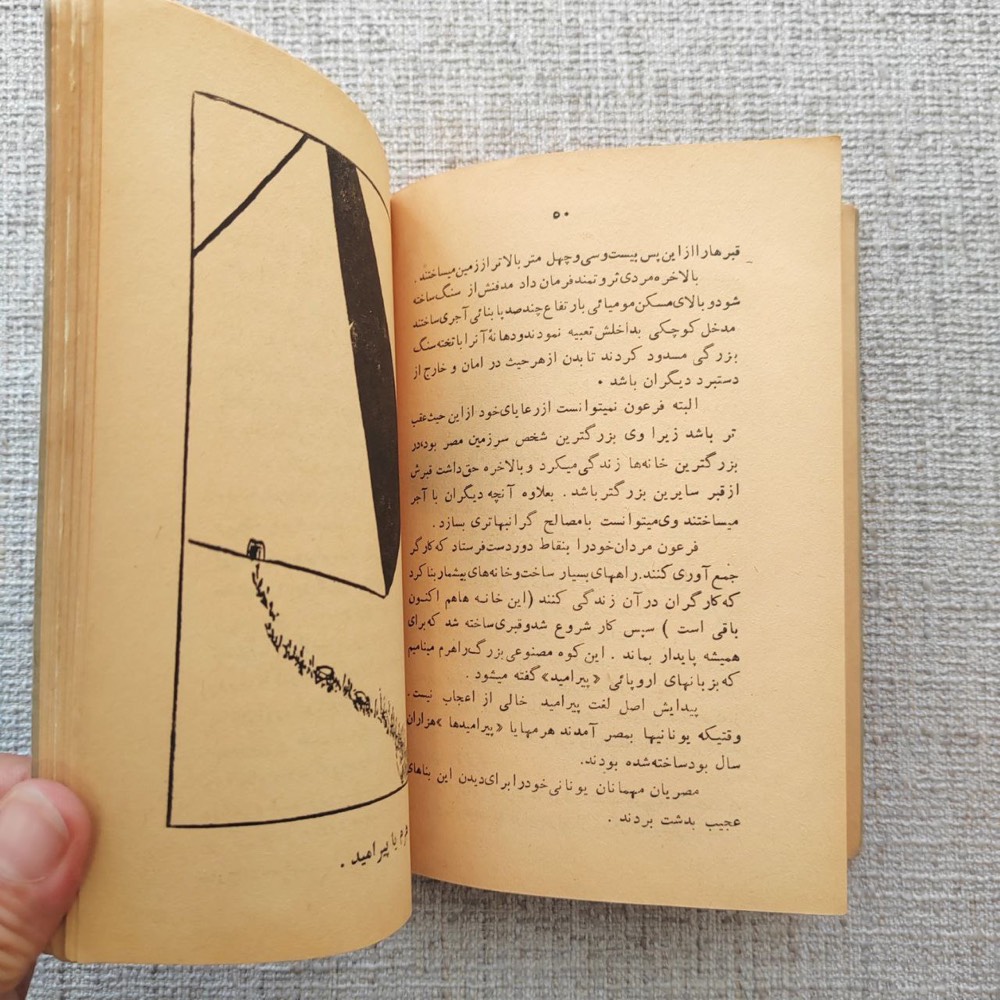 ۵۰
قبرها را از این پس بیست و سی و چهل متر بالاتر از زمین میساختند .
بالاخره مردی ثروتمند فرمان داد مدفنش از سنگ ساخته
شود و بالای مسکن مومیائی بارتفاع چند صد پا بنائی آجری ساختند
مدخل کوچکی بداخلش تعبیه نمودند و دهانهٔ آنرا با تخته سنگ
بزرگی مسدود کردند تا بدن از هر حیث در امان و خارج از
دستبرد دیگران باشد .
البته فرعون نمیتوانست از رعایای خود از این حیث عقب
تر باشد زیرا وی بزرگترین شخص سرزمین مصر بود، در
بزرگترین خانه‌ها زندگی میکرد و بالاخره حق داشت قبرش
از قبر سایرین بزرگتر باشد . بعلاوه آنچه دیگران با آجر
میساختند وی میتوانست با مصالح گرانبهاتری بسازد .
فرعون مردان خود را بنقاط دور دست فرستاد که کارگر
جمع آوری کنند. راههای بسیار ساخت و خانه‌های بیشمار بنا کرد
که کارگران در آن زندگی کنند (این خانه ها هم اکنون
باقی است ) سپس کار شروع شد و قبری ساخته شد که برای
همیشه پایدار بماند . این کوه مصنوعی بزرگ را هرم مینامیم
که بزبانهای اروپائی «پیرامید» گفته میشود .
پیدایش اصل لغت پیرامید خالی از اعجاب نیست .
وقتیکه یونانیها بمصر آمدند هرمها یا «پیرامیدها» هزاران
سال بود ساخته شده بودند.
مصریان مهمانان یونانی خود را برای دیدن این بناهای
عجیب بدشت بردند .
یا پیرامید .